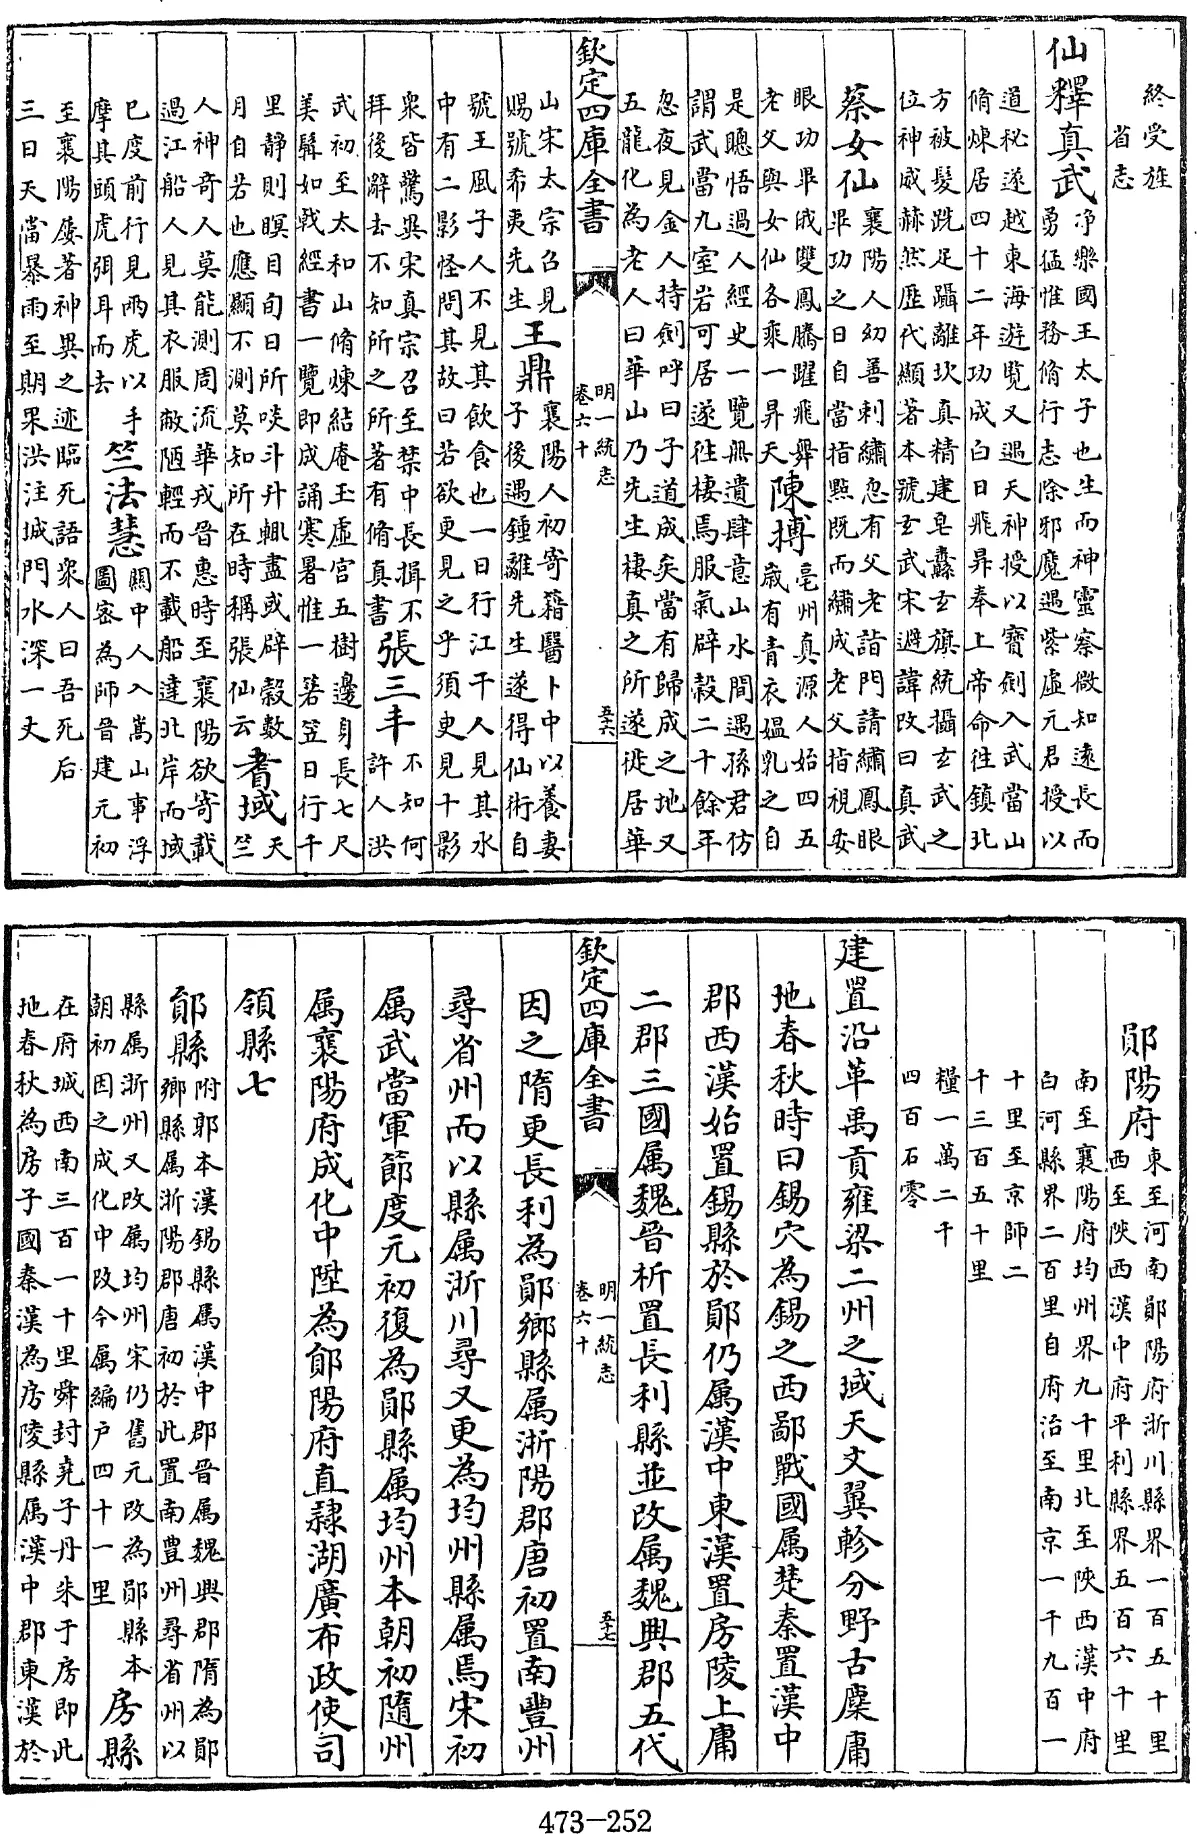 終受旌
省志
仙釋真武淨樂國王太子也生而神靈察微知遠長而
勇猛惟務脩行志除邪魔遇紫虛元君授以
道秘遂越東海遊覧又遇天神授以寳劍入武當山
脩煉居四十二年功成白日飛昇奉上帝命往鎮北
方被髮跣足躡離坎真精建皂纛玄旗統攝玄武之
位神威赫然歴代顯著本號玄武宋避諱改曰真武
蔡女仙襄陽人幼善刺繡忽有父老詣門請繡鳳眼
畢功之日自當指㸃既而繡成老父指視安
眼功畢成雙鳳騰躍飛舞
老父與女仙各乘一昇天陳摶亳州真源人始四五
歲有青衣媪乳之自
是聰悟過人經史一覧無遺肆意山水間遇孫君仿
謂武當九室岩可居遂往棲焉服氣辟穀二十餘年
忽夜見金人持劍呼曰子道成矣當有歸成之地又
五龍化為老人曰華山乃先生棲真之所遂徙居華
欽定四庫全書
明一統志
卷六十
五十六
山宋太宗召見
賜號希夷先生王鼎襄陽人初寄籍醫卜中以養妻
子後遇鍾離先生遂得仙術自
號王風子人不見其飲食也一日行江干人見其水
中有二影怪問其故曰若欲更見之乎須更見十影
衆皆驚異宋真宗召至禁中長揖不
拜後辭去不知所之所著有脩真書張三丰不知何
許人洪
武初至太和山脩煉結庵玉虛宫五樹邊身長七尺
美髯如戟經書一覽即成誦寒暑惟一蓑笠日行千
里静則瞑目旬日所啖斗升輒盡或辟穀數
月自若也應顯不測莫知所在時稱張仙云耆域天
竺
人神奇人莫能測周流華戎晉惠時至襄陽欲寄載
過江船人見其衣服敝陋輕而不載船達北岸而域
已度前行見兩虎以手
摩其頭虎弭耳而去竺法慧關中人入嵩山事浮
圖宻為師晉建元初
至襄陽屢著神異之迹臨死語衆人曰吾死后
三日天當暴雨至期果洪注城門水深一丈
鄖陽府東至河南鄖陽府淅川縣界一百五十里
西至陜西漢中府平利縣界五百六十里
南至襄陽府均州界九十里北至陜西漢中府
白河縣界二百里自府治至南京一千九百一
十里至京師二
千三百五十里
糧一萬二千
四百石零
建置沿革禹貢雍梁二州之域天文翼軫分野古麇庸
地春秋時曰錫穴為錫之西鄙戰國属楚秦置漢中
郡西漢始置錫縣於鄖仍属漢中東漢置房陵上庸
二郡三國属魏晉析置長利縣並改属魏興郡五代
欽定四庫全書
明一統志
卷六十
五十七
因之隋更長利為鄖鄉縣属淅陽郡唐初置南豐州
尋省州而以縣属淅川尋又更為均州縣属焉宋初
属武當軍節度元初復為鄖縣属均州本朝初隨州
属襄陽府成化中陞為鄖陽府直隷湖廣布政使司
領縣七
鄖縣附郭本漢錫縣属漢中郡晉属魏興郡隋為鄖
鄉縣属淅陽郡唐初於此置南豊州尋省州以
縣属淅州又改属均州宋仍舊元改為鄖縣本
朝初因之成化中改今属編户四十一里房縣
在府城西南三百一十里舜封堯子丹朱于房即此
地春秋為房子國秦漢為房陵縣属漢中郡東漢於
473-252